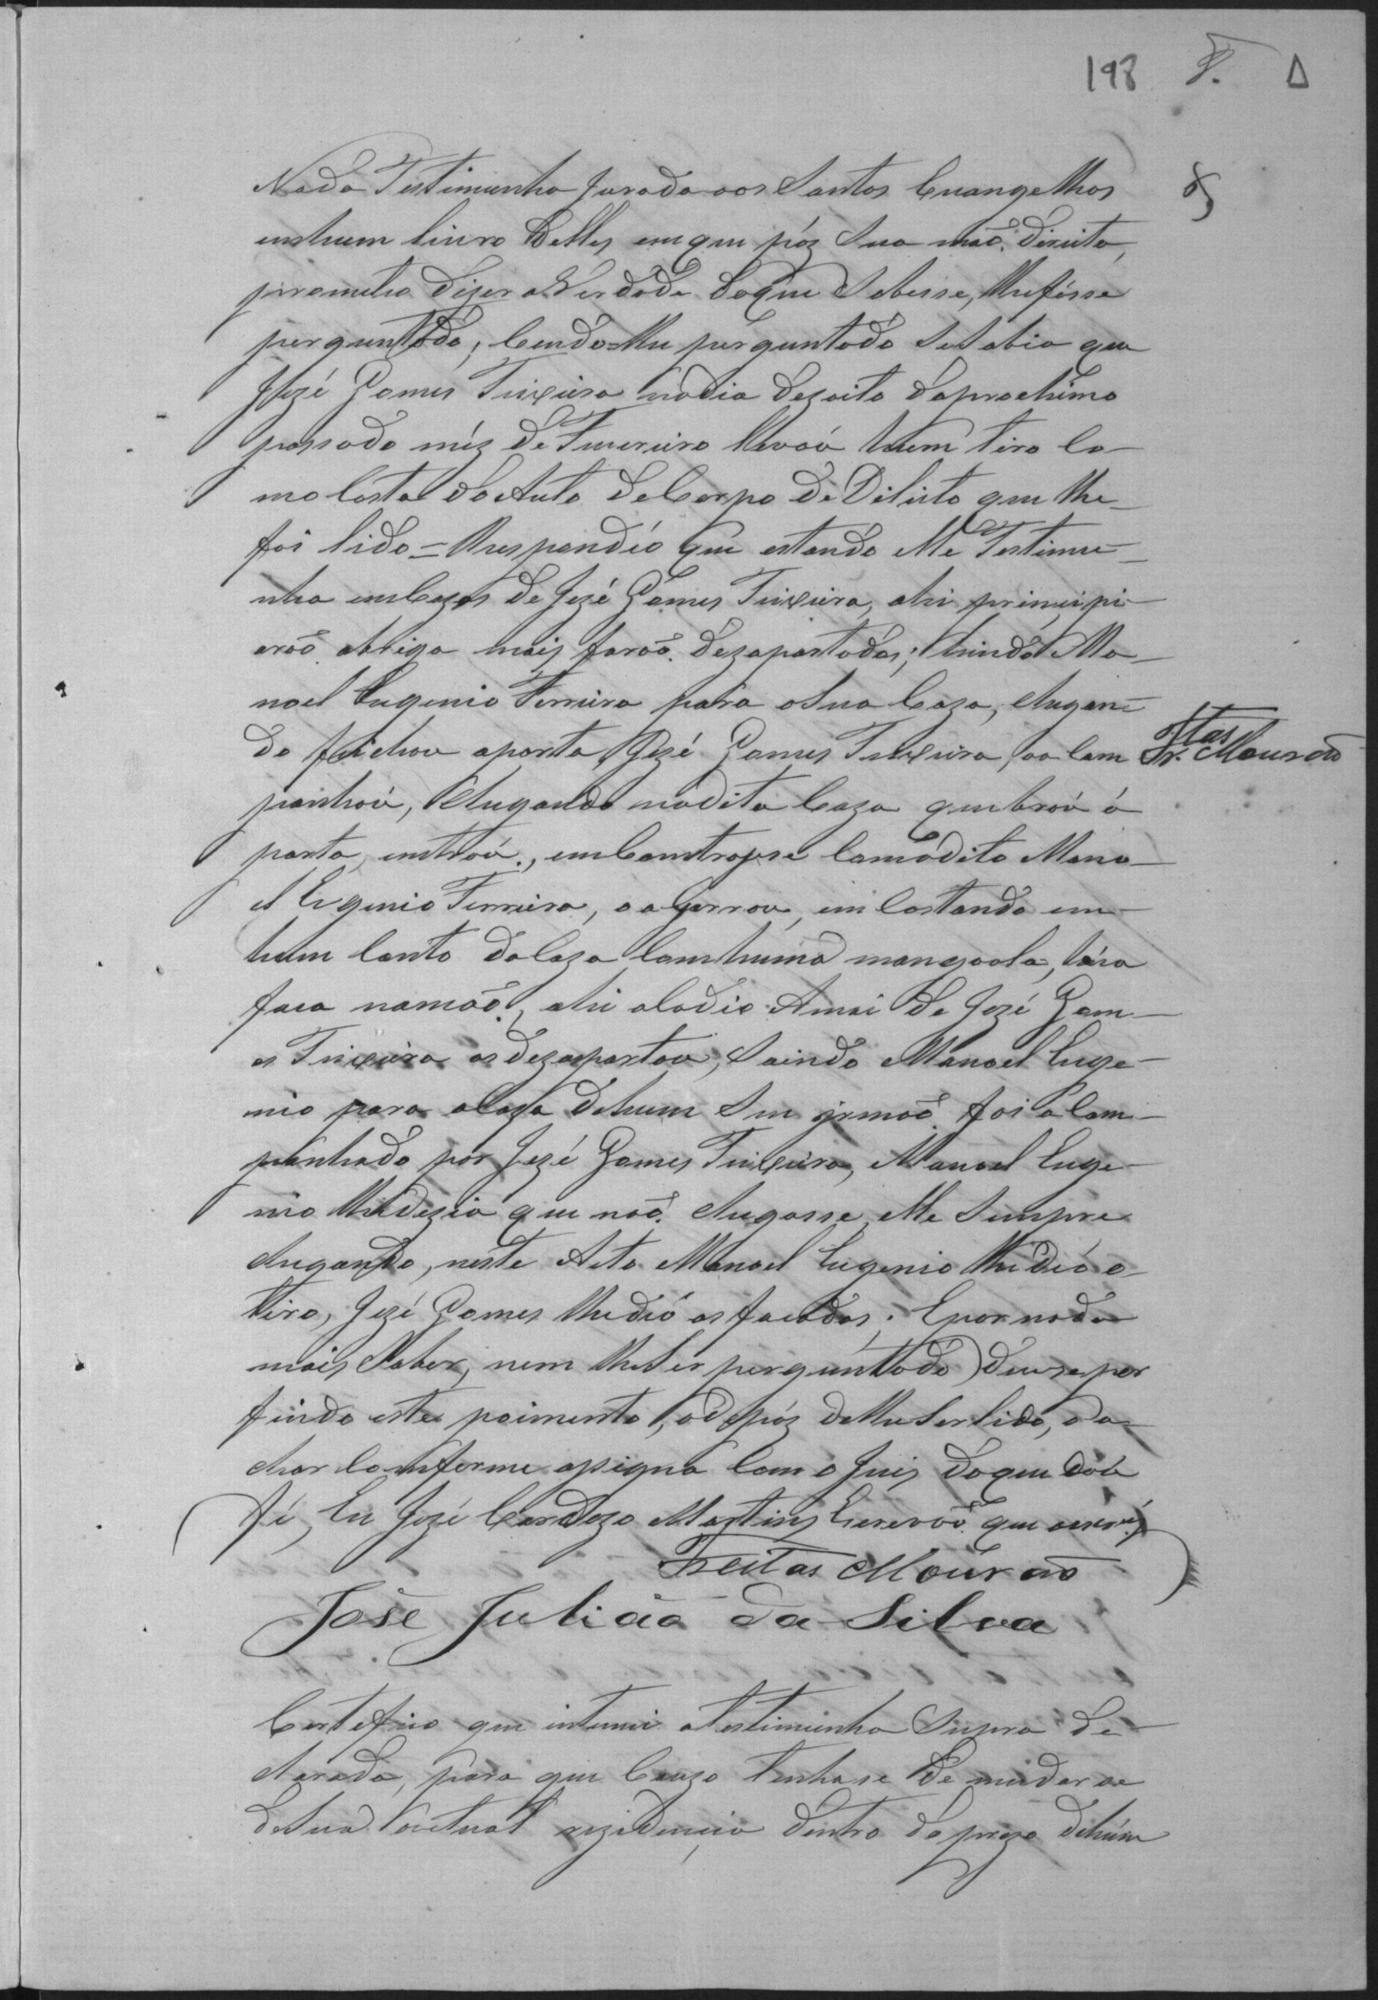 198 8. Δ
8
Nada Testimunha jurada aos Santos Euangelhos
emhum livro delles emque pôz sua mão direita,
prometeo dizer averdade doque Sobesse, lhefosse
perguntado, Cendo=lhe perguntado seSabia que
Jozé Gomes Teixeira nodia dezoito doprochimo
passado mêz de Fuvereiro llevou hum tiro Co-
mo Costa doAuto deCorpo deDelicto que lhe
foi lido = Respondéo que estando elle Testimu-
nha emCazas de Jozé Gomes Teixeira, ahi principi-
arão abriga mais forão dezapartados; hindo Ma-
noel Eugenio Ferreira para aSua Caza, chegan-
do feichou aporta, Jozé Gomes Teixeira, oaCom
Ftas
Fr. Mourão
panhou, chegando nadita Caza quebrou á
porta, entrou, emContrase Comodito Mano-
el Eugenio Ferreira, oagarrou, emCostando em-
hum Canto daCaza Comhuma mangoala, huma
faca namão, ahi acodio Amai de Jozé Gom-
es Teixeira os dezapartou, Saindo Manoel Euge-
nio para aCaza dehum Seu irmão foi aCom-
panhado por Jozé Gomes Teixeira, Manoel Euge-
nio lhedezia que não chegasse, elle Sempre
chegando, neste Acto Manoel Eugenio lhe dió o
tiro, Jozé Gomes lhedió as facadas; Epornada
mais Saber, nem lheSer perguntado deuse por
findo este poimento, odepôz delheSerlido, oa-
char Comforme asigna Com o Juis doque dou
fé, Eu Jozé Cardozo Martins Escrivão que oescrevi
Freitas Mourão
José Julião da Silva
Certefico que intimei aTestimunha Supra de-
clarada, para que Cauzo tenhase de mudarse
desua actual rezidencia dentro doprazo dehúm